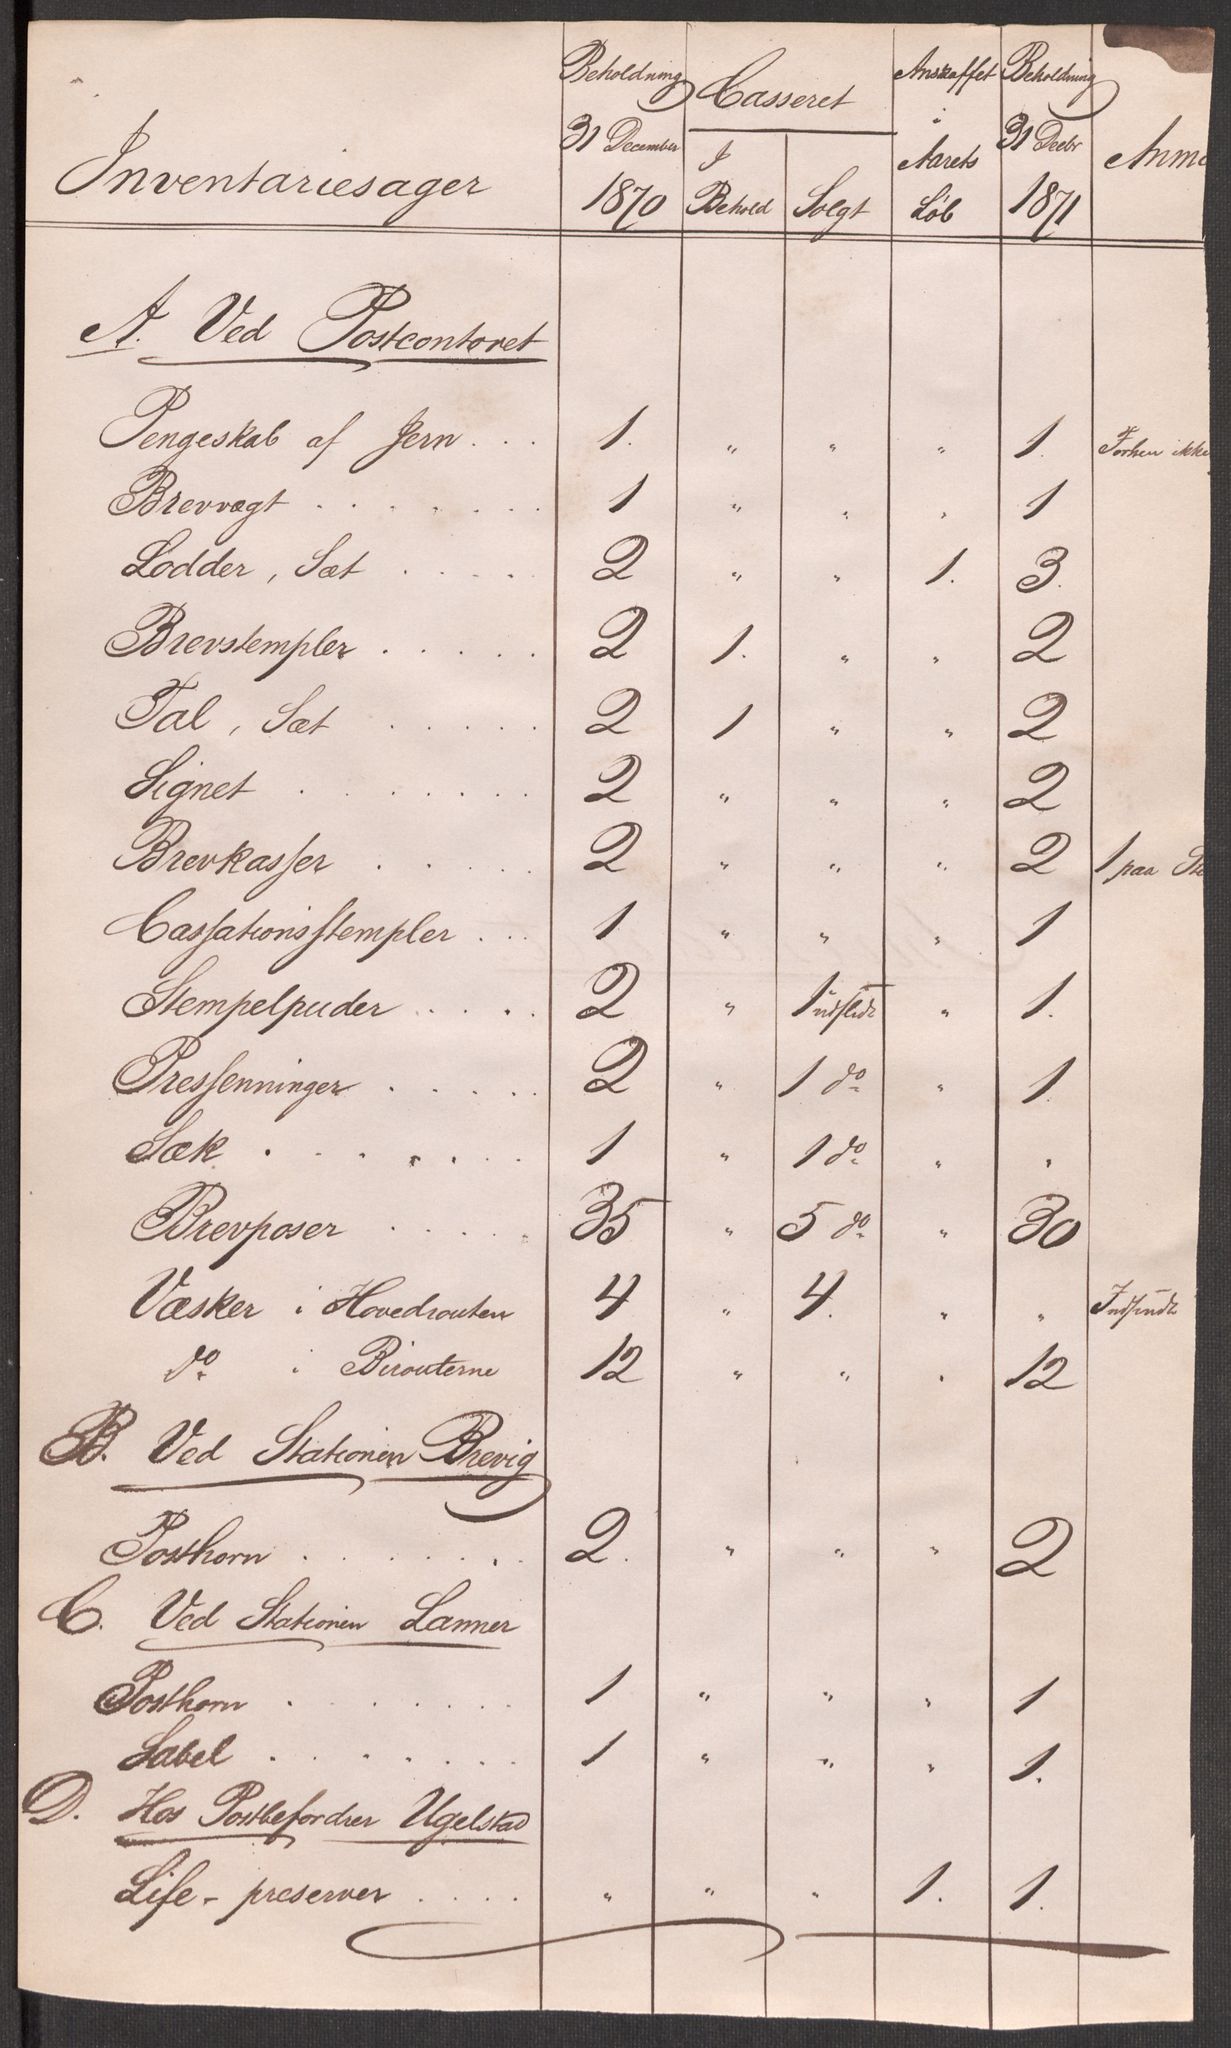 Inventariesager | Beholdning 31 December 1870 | Casseret I Behold | Solgt | Anskaffet i Aarets Løb | Beholdning 31 Decbr 1871 | Anm
A. Ved Postcontoret
Pengeskab af Jern . . . 1. " " " 1. Forhen ikke
Brevvægt . . . . . . . 1 " " " 1
Lodder, Sæt . . . . . 2 " " 1. 3.
Brevstempler . . . . . 2 1. " " 2
Tal, Sæt . . . . . 2 1 " " 2
Signet . . . . . . . 2 " " " 2
Brevkasser . . . . 2 " " " 2 1 paa
Cassationsstempler . . . 1 " " " 1
Stempelpuder . . . . 2 " 1 " 1.
Pressenninger . . . . . 2 " 1 do " 1.
Sæk . . . . . . . 1 " 1 do " "
Brevposer . . . . . 35 " 5 do " 30
Væsker i Hovedrouten 4 " 4. " " Indsendt
do i Birouterne 12 " " " 12
B. Ved Stationen Brevig
Posthorn . . . . . . . 2. " " " 2
C. Ved Stationen Lanner
Posthorn . . . . . . . 1 " " " 1
Sabel . . . . . . . 1 " " " 1.
D. Hos Postbefordrer Ugelstad
Life-preserver . . . . " " " 1. 1.